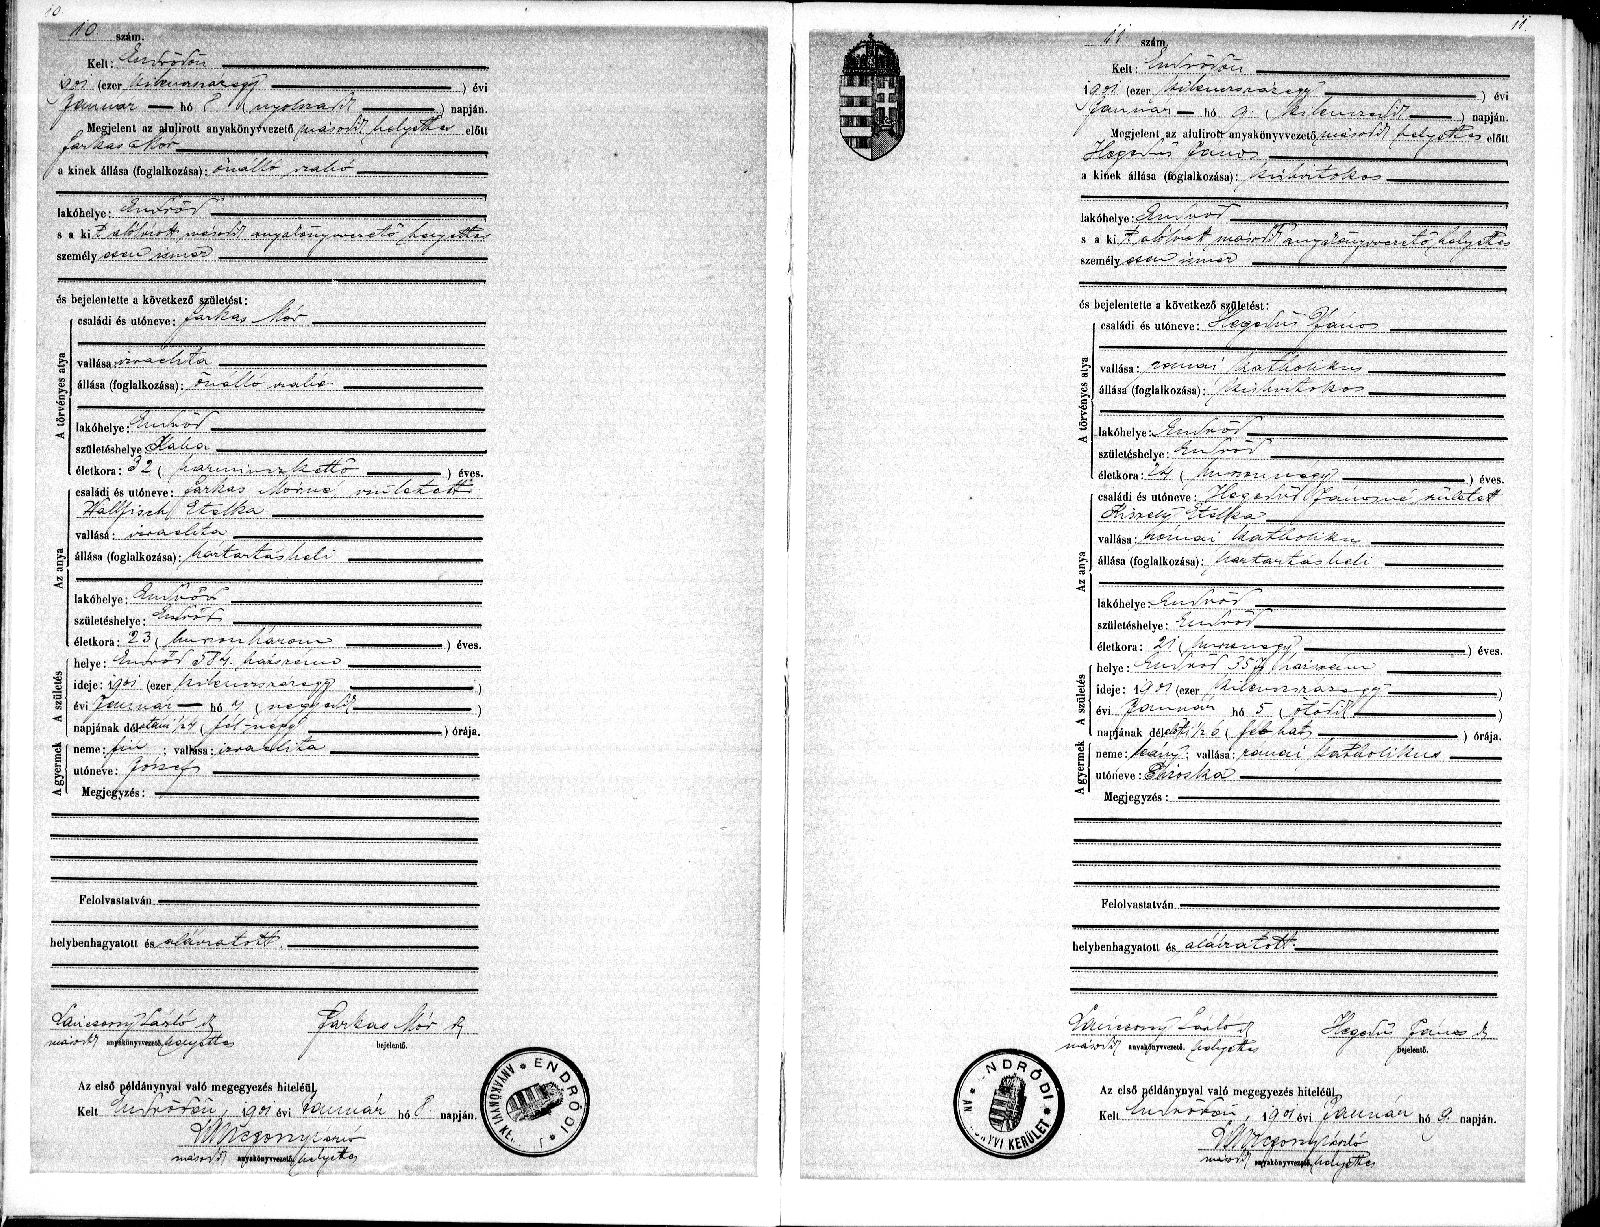 10
10. szám.
Kelt: Endrődön
901 (ezer kilencszázegy) évi
Január hó 8 (nyolcadik) napján.
Megjelent az alulirott anyakönyvvezető másodk helyettes előtt
Farkas Mór
a kinek állása (foglalkozása): önálló szabó
lakóhelye: Endrőd
s a kit alólírott másodk anyakönyvvezető helyettes
személyesen ismer
és bejelentette a következő születést:
A törvényes atya
családi és utóneve: Farkas Mór
vallása: izraelita
állása (foglalkozása): önálló szabó
lakóhelye: Endrőd
születéshelye Kaba
életkora: 32 (harminczkettő) éves.
Az anya
családi és utóneve: Farkas Mórné született
Wallfisch Etelka
vallása: izraelita
állása (foglalkozása): háztartásbeli
lakóhelye: Endrőd
születéshelye: Endrőd
életkora: 23 (huszonhárom) éves.
A születés
helye: Endrőd 584. házszám
ideje: 1901 (ezer kilencszázegy)
évi Január hó 4 (negyedik)
napjának délutáni 1/24 (fél négy) órája.
A gyermek
neme: fiú; vallása: izraelita
utóneve: József
Megjegyzés:
Felolvastatván
helybenhagyatott és aláiratott.
Lánczsonyi László
másodk anyakönyvvezető, helyettes
Farkas Mór
bejelentő.
Az első példánynyal való megegyezés hiteléül,
Kelt Endrődön, 1901 évi Január hó 8 napján.
László
másodk anyakönyvvezető, helyettes
ENDRŐDI
11.
11 szám
Kelt: Endrődön
1901 (ezer kilencszázegy) évi
Január hó 9. (kilenczedik) napján.
Megjelent az alulirott anyakönyvvezető másodk helyettes előtt
Hegedüs János
a kinek állása (foglalkozása): kisbirtokos
lakóhelye: Endrőd
s a kit alólírott másodk anyakönyvvezető helyettes
személyesen ismer
és bejelentette a következő születést:
A törvényes atya
családi és utóneve: Hegedüs János
vallása: római katholikus
állása (foglalkozása): kisbirtokos
lakóhelye: Endrőd
születéshelye: Endrőd
életkora: éves.
Az anya
családi és utóneve: Hegedüs Jánosné született
Etelka
vallása: római katholikus
állása (foglalkozása): háztartásbeli
lakóhelye: Endrőd
születéshelye: Endrőd
életkora: 21 (huszonegy) éves.
A születés
helye: Endrőd 357 házszám
ideje: 1901 (ezer kilencszázegy)
évi Január hó 5 (ötödik)
napjának délelőtti 1/2 6 (fél hat) órája.
A gyermek
neme: leány; vallása: római katholikus
utóneve: Piroska
Megjegyzés:
Felolvastatván
helybenhagyatott és aláiratott.
Lánczsonyi László
másodk anyakönyvvezető, helyettes
Hegedüs János
bejelentő.
Az első példánynyal való megegyezés hiteléül,
Kelt Endrődön, 1901 évi Január hó 9. napján.
László
másodk anyakönyvvezető, helyettes
ENDRŐDI KERÜLET